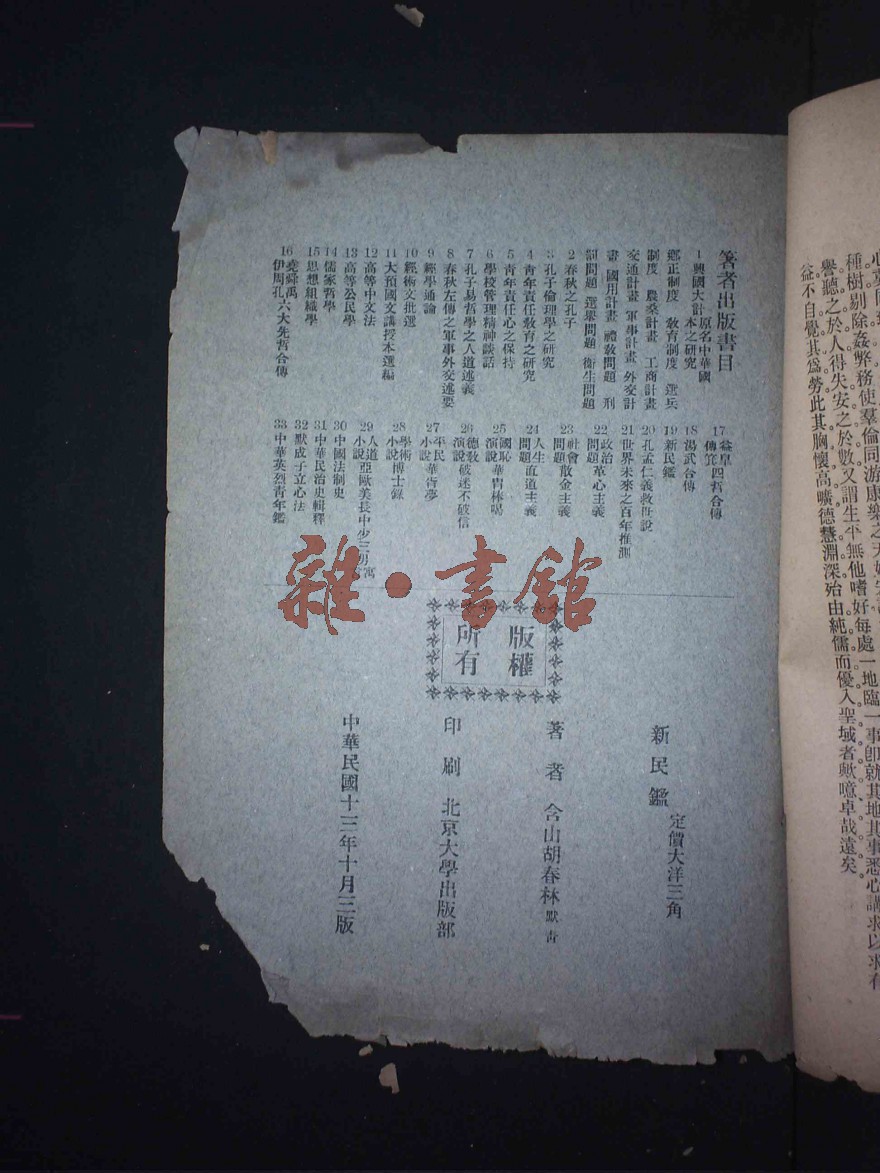 益不自覺其爲勞此其胸懷高曠德慧淵深殆由純儒而優入聖域者歟噫卓哉遠矣。
著者出版書目
1 興國大計 原名中華國
本之研究
鄉正制度 教育制度 選兵
制度 農桑計畫 工商計畫
交通計畫 軍事計畫 外交計
畫 國用計畫 禮教問題 刑
罰問題 選舉問題 衛生問題
2 春秋之孔子
3 孔子倫理學之研究
4 青年責任敎育之研究
5 青年責任心之保持
6 學校管理精神談話
7 孔子易哲學之人道述義
8 春秋左傳之軍事外交述要
9 經學通論
10 經術文批選
11 大預國文講授本選編
12 高等中文法
13 高等公民學
14 儒家哲學
15 思想組織學
16 堯舜禹
伊周孔六大先哲合傳
17 益皐
傅箕四哲合傳
18 湯武合傳
19 新民鑑
20 孔孟仁義救世說
21 世界未來之百年推測
22 政治
問題 革心主義
23 社會
問題 散金主義
24 人生
問題 直道主義
25 國恥
演說 華胄棒喝
26 德敎
演說 破迷不破信
27 平民
小說 華胥夢
28 學術
小說 博士錄
29 人道
小說 亞歐美長中少三男寓
30 中國法制史
31 中華民治史輯釋
32 默成子立心法
33 中華英烈靑年鑑
雜·書館
版權
所有
新民鑑 定價大洋三角
著者 含山胡春林 默青
印刷 北京大學出版部
中華民國十三年十月三版